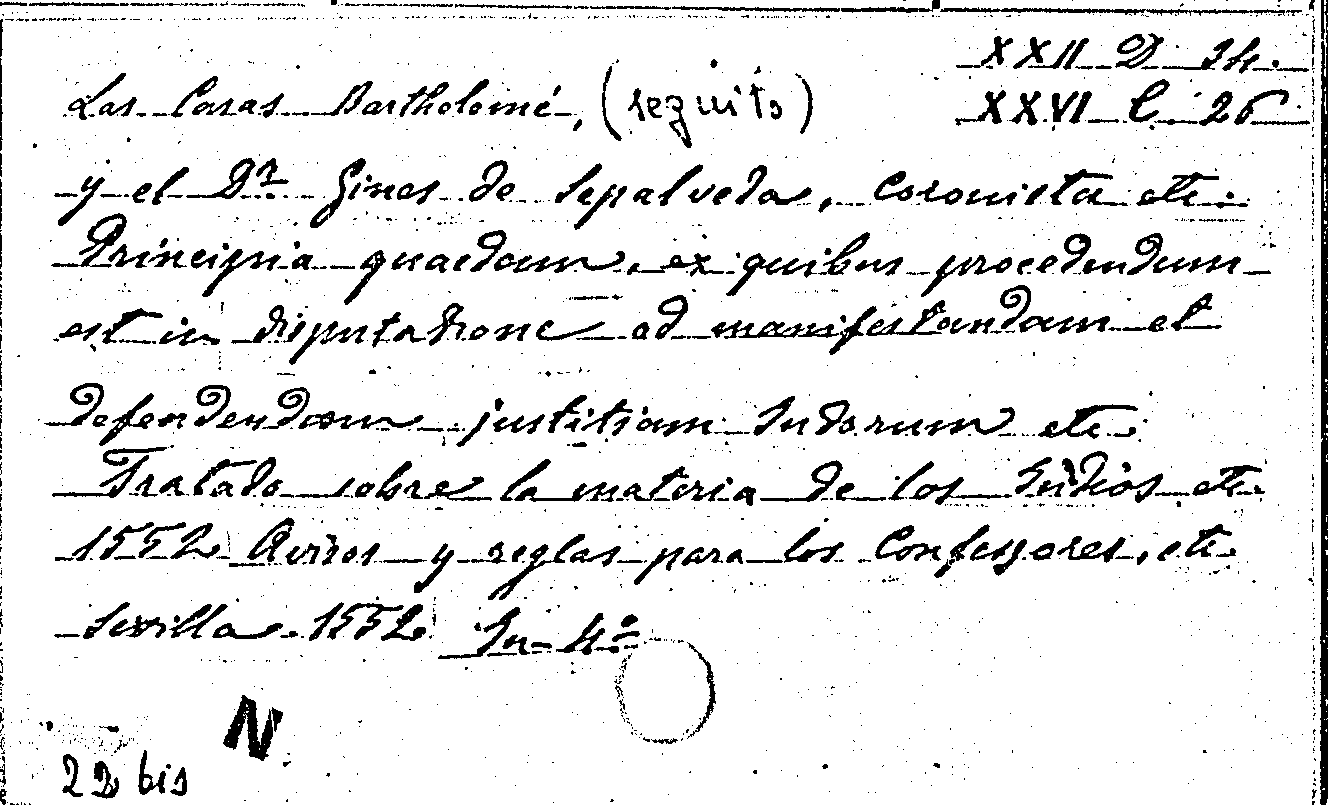 XXII D 34.
Las Casas Bartholomé, (seguito)
XXVI C 26
y el Dr. Gines de Sepalveda, Coronista etc.
Principia quaedam, ex quibus procedendum
est in disputatione ad manifestandam et
defendendam justitiam Indorum etc.
Tratado sobre la materia de los Indios etc.
1552. Avisos y reglas para los Confessores, etc.
Sevilla. 1552. In-4º
N
22 bis